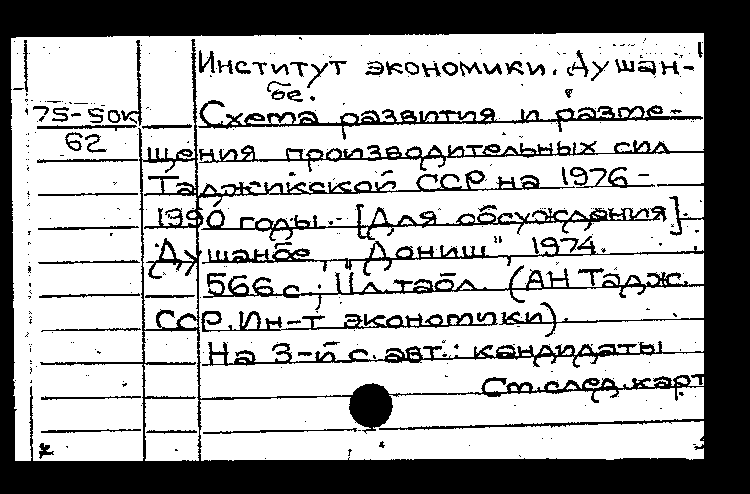 Институт экономики. Душан-
бе.
75-50к Схема развития и разме-
62
щения производительных сил
Таджикской ССР на 1976-
1990 годы.- [Для обсуждения].
Душанбе, "Дониш", 1974.
566 с.; 11 л.табл. (АН Тадж.
ССР. Ин-т экономики).
На 3-й с. авт.: кандидаты
См.след.карт